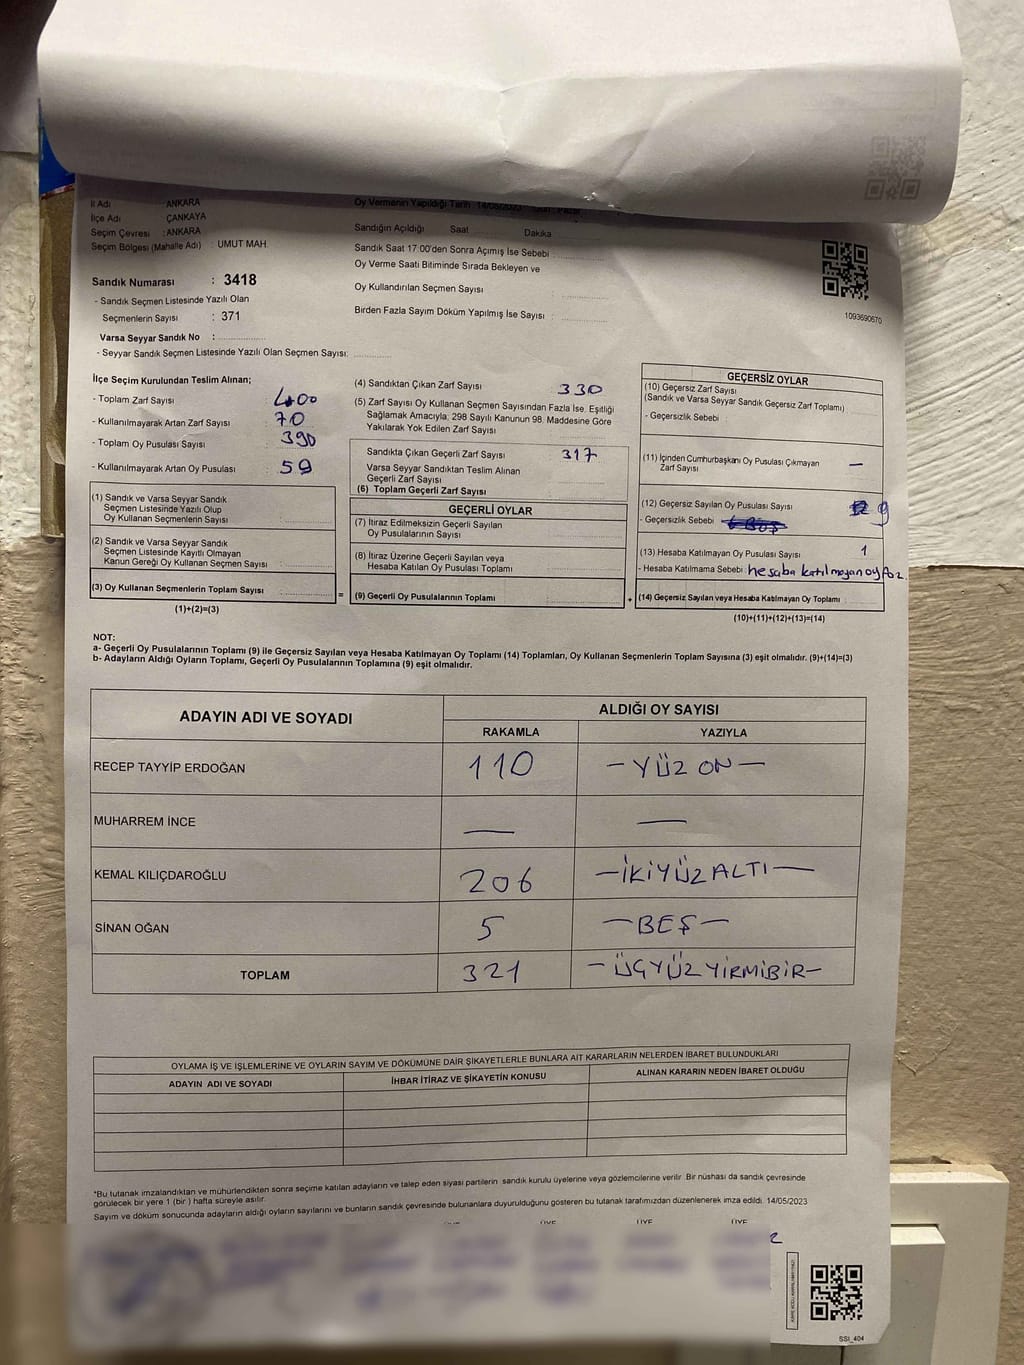 İl Adı ANKARA
İlçe Adı ÇANKAYA
Seçim Çevresi : ANKARA
Seçim Bölgesi (Mahalle Adı) : UMUT MAH.
Sandık Numarası : 3418
- Sandık Seçmen Listesinde Yazılı Olan
Seçmenlerin Sayısı : 371
Varsa Seyyar Sandık No :
- Seyyar Sandık Seçmen Listesinde Yazılı Olan Seçmen Sayısı:
Oy Vermenin Yapıldığı Tarih : 14/05/2023
Sandığın Açıldığı Saat Dakika
Sandık Saat 17:00'den Sonra Açımış İse Sebebi :
Oy Verme Saati Bitiminde Sırada Bekleyen ve
Oy Kullandırılan Seçmen Sayısı :
Birden Fazla Sayım Döküm Yapılmış İse Sayısı :
1093690670
İlçe Seçim Kurulundan Teslim Alınan;
- Toplam Zarf Sayısı : 400
- Kullanılmayarak Artan Zarf Sayısı : 70
- Toplam Oy Pusulası Sayısı : 390
- Kullanılmayarak Artan Oy Pusulası : 59
(1) Sandık ve Varsa Seyyar Sandık
Seçmen Listesinde Yazılı Olup
Oy Kullanan Seçmenlerin Sayısı :
(2) Sandık ve Varsa Seyyar Sandık
Seçmen Listesinde Kayıtlı Olmayan
Kanun Gereği Oy Kullanan Seçmen Sayısı :
(3) Oy Kullanan Seçmenlerin Toplam Sayısı :
(1)+(2)=(3)
(4) Sandıktan Çıkan Zarf Sayısı : 330
(5) Zarf Sayısı Oy Kullanan Seçmen Sayısından Fazla İse, Eşitliği
Sağlamak Amacıyla; 298 Sayılı Kanunun 98. Maddesine Göre
Yakılarak Yok Edilen Zarf Sayısı :
Sandıkta Çıkan Geçerli Zarf Sayısı : 317
Varsa Seyyar Sandıktan Teslim Alınan
Geçerli Zarf Sayısı :
(6) Toplam Geçerli Zarf Sayısı :
GEÇERLİ OYLAR
(7) İtiraz Edilmeksizin Geçerli Sayılan
Oy Pusulalarının Sayısı :
(8) İtiraz Üzerine Geçerli Sayılan veya
Hesaba Katılan Oy Pusulası Toplamı :
= (9) Geçerli Oy Pusulalarının Toplamı :
GEÇERSİZ OYLAR
(10) Geçersiz Zarf Sayısı
(Sandık ve Varsa Seyyar Sandık Geçersiz Zarf Toplamı)
- Geçersizlik Sebebi :
(11) İçinden Cumhurbaşkanı Oy Pusulası Çıkmayan —
Zarf Sayısı
(12) Geçersiz Sayılan Oy Pusulası Sayısı 9
- Geçersizlik Sebebi :
(13) Hesaba Katılmayan Oy Pusulası Sayısı 1
- Hesaba Katılmama Sebebi :
+ (14) Geçersiz Sayılan veya Hesaba Katılmayan Oy Toplamı :
(10)+(11)+(12)+(13)=(14)
NOT:
a- Geçerli Oy Pusulalarının Toplamı (9) ile Geçersiz Sayılan veya Hesaba Katılmayan Oy Toplamı (14) Toplamları, Oy Kullanan Seçmenlerin Toplam Sayısına (3) eşit olmalıdır. (9)+(14)=(3)
b- Adayların Aldığı Oyların Toplamı, Geçerli Oy Pusulalarının Toplamına (9) eşit olmalıdır.
ADAYIN ADI VE SOYADI ALDIĞI OY SAYISI
RAKAMLA YAZIYLA
RECEP TAYYİP ERDOĞAN 110 — YÜZ ON —
MUHARREM İNCE — —
KEMAL KILIÇDAROĞLU 206 — İKİYÜZALTI —
SİNAN OĞAN 5 — BEŞ —
TOPLAM 321 — ÜÇYÜZYİRMİBİR —
OYLAMA İŞ VE İŞLEMLERİNE VE OYLARIN SAYIM VE DÖKÜMÜNE DAİR ŞİKAYETLERLE BUNLARA AİT KARARLARIN NELERDEN İBARET BULUNDUKLARI
ADAYIN ADI VE SOYADI İHBAR İTİRAZ VE ŞİKAYETİN KONUSU ALINAN KARARIN NEDEN İBARET OLDUĞU
*Bu tutanak imzalandıktan ve mühürlendikten sonra seçime katılan adayların ve talep eden siyasi partilerin sandık kurulu üyelerine veya gözlemcilerine verilir. Bir nüshası da sandık çevresinde
görülecek bir yere 1 (bir ) hafta süreyle asılır.
Sayım ve döküm sonucunda adayların aldığı oyların sayılarını ve bunların sandık çevresinde bulunanlara duyurulduğunu gösteren bu tutanak tarafımızdan düzenlenerek imza edildi. 14/05/2023
ÜYE ÜYE ÜYE ÜYE
SSI_404